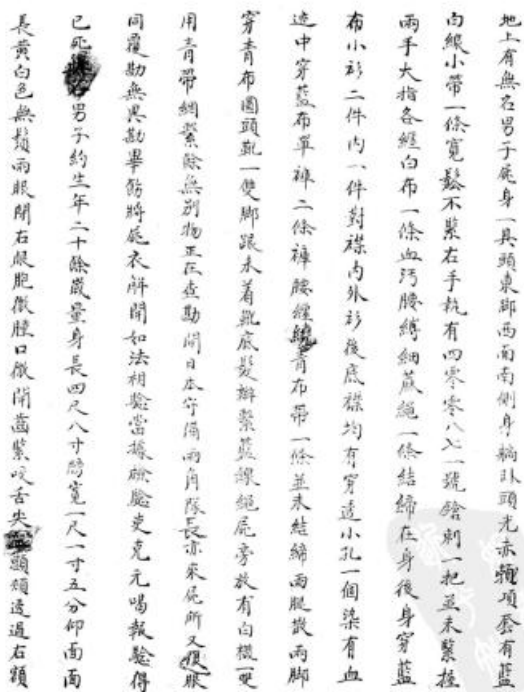 地上有無名男子屍身一具頭東脚西面南側身躺卧頭光赤頸項套有藍
白線小帶一條寬鬆不緊右手執有四零零八六一號鎗刺一把並未緊握
兩手大指各纏白布一條血污腰縛細蔴繩一條結締在身後身穿藍
布小衫二件内一件對襟内外衫後底襟均有穿透小孔一個染有血
迹中穿藍布單褲二條褲腰纏青布帶一條並未結締兩腿散兩脚
穿青布圓頭靴一雙脚跟未着靴底髮辮繫藍線繩屍旁放有白襪一雙
用青帶綑繫餘無别物正在查勘間日本守備兩角隊長亦來屍所又復眼
同覆勘無異勘畢飭將屍衣解開如法相驗當據檢驗吏克元喝報驗得
已死無名男子約生年二十餘歲量身長四尺八寸膀寬一尺一寸五分仰面面
長黄白色無鬚兩眼閉右眼胞微腫口微開齒緊咬舌尖顯頬透過右頷